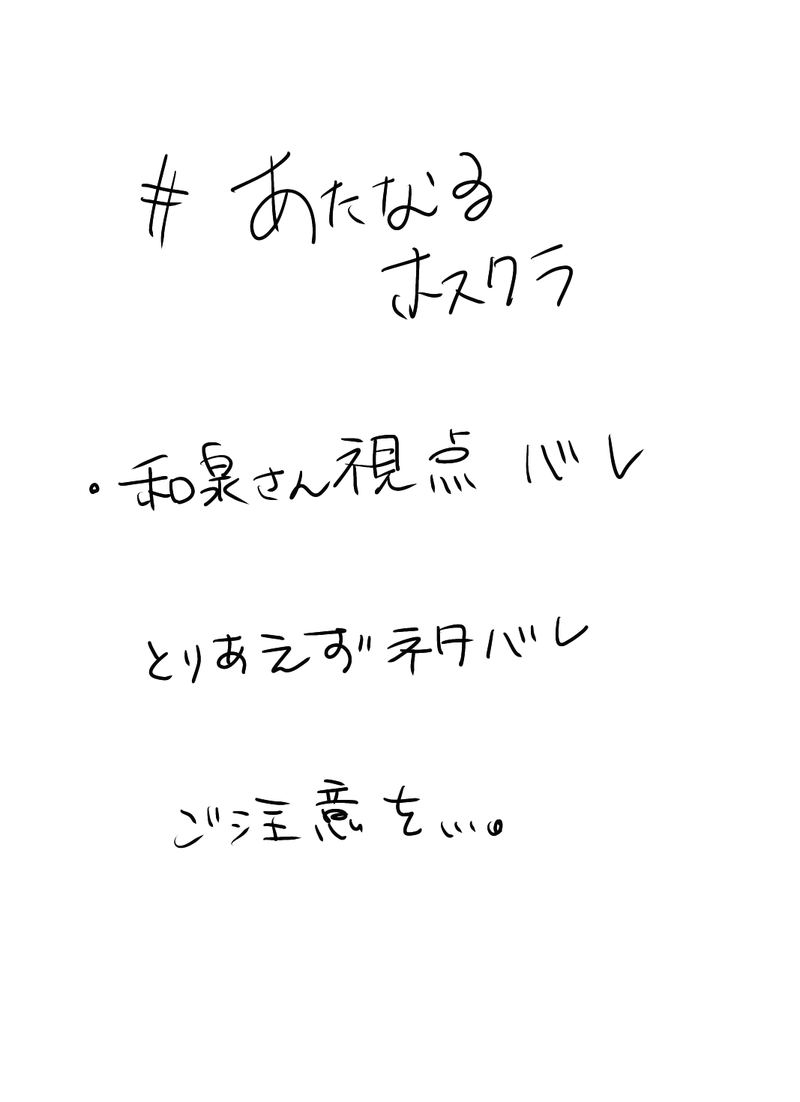 # あたなる
ホスクラ
・和泉さん視点 バレ
とりあえずネタバレ
ご注意を…。